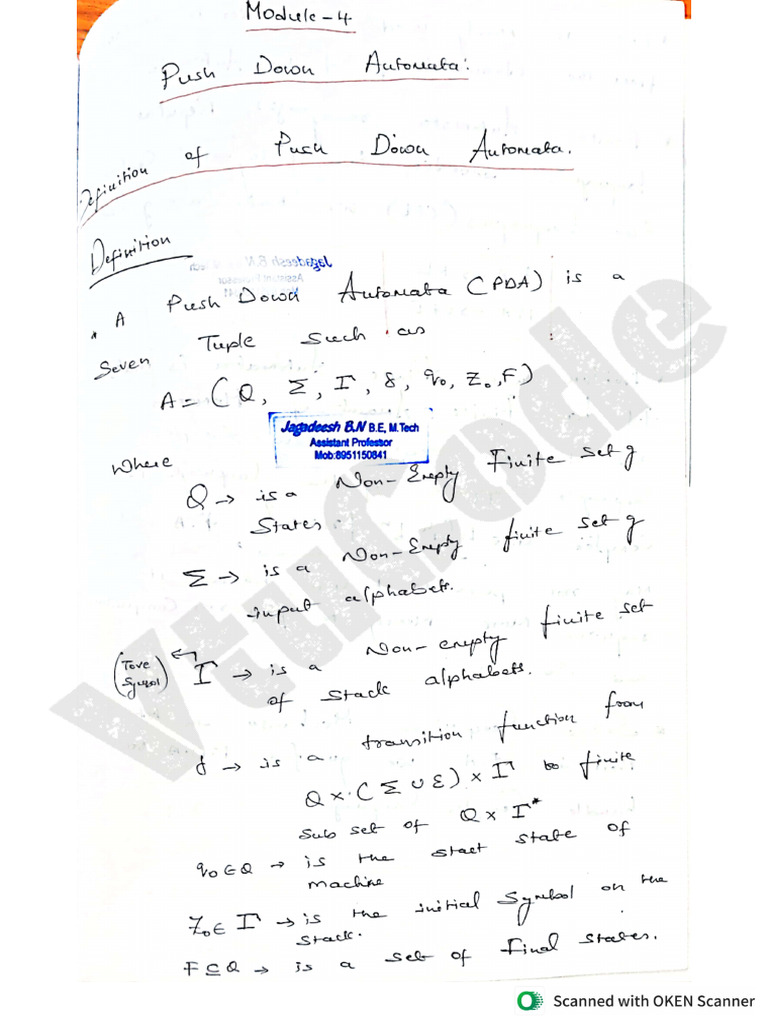 Module-4
Push Down Automata:
Definition of Push Down Automata.
Definition
Jagadeesh B.N
Assistant Professor
* A Push Down Automata (PDA) is a
Seven Tuple such as :
A = (Q, Σ, Γ, δ, q0, Z0, F)
Jagadeesh B.N B.E, M.Tech
Assistant Professor
Mob:8951150841
Where
Q → is a Non-Empty Finite set of
States
Σ → is a Non-Empty finite set of
input alphabets.
(Tove Symbol) ← Γ → is a Non-empty finite set
of stack alphabets.
δ → is a transition function from
Q × (Σ ∪ ε) × Γ to finite
sub set of Q × Γ*
q0 ∈ Q → is the start state of
machine
Z0 ∈ Γ → is the initial Symbol on the
stack.
F ⊆ Q → is a set of Final states.
VtuCode
Scanned with OKEN Scanner